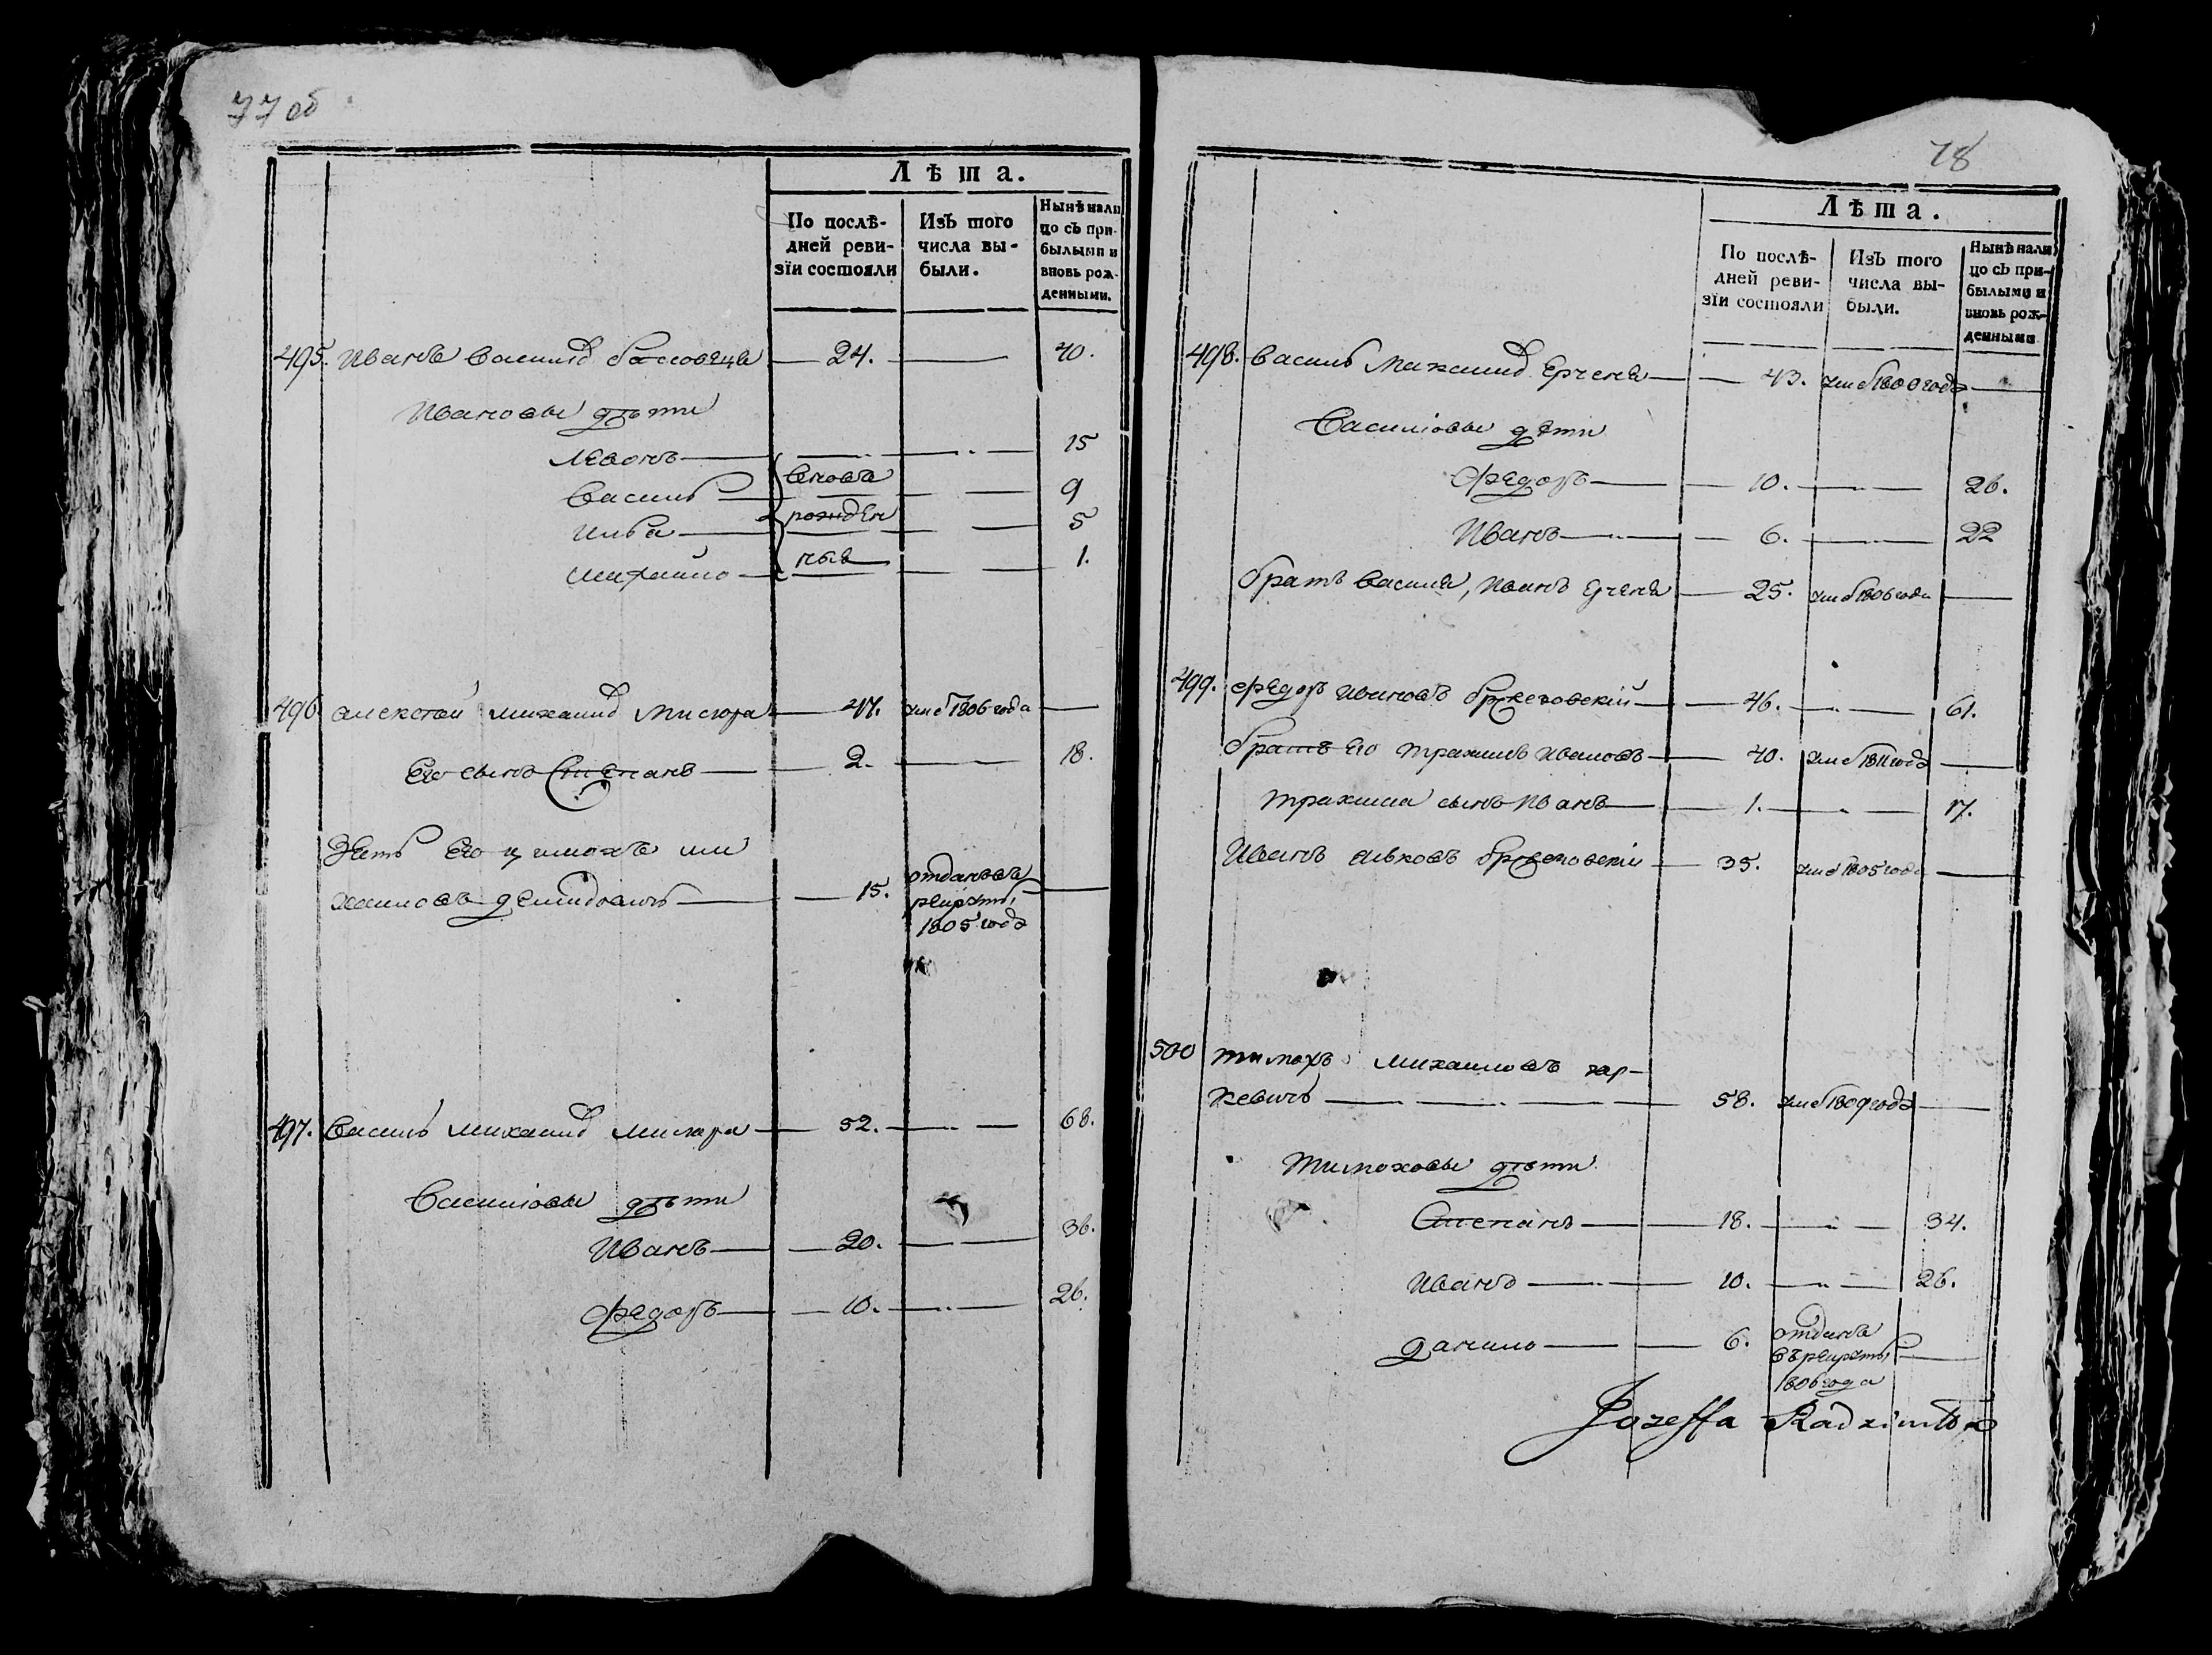 77 об
Лѣта.
По послѣ-
дней реви-
зїи состояли
Изъ того
числа вы-
были.
Нынѣ нали
цо съ при-
былыми и
вновь рож-
денными.
495. Иванъ Васильѣ 24. 40.
Ивановы дѣти
Левонъ 15
Василь вновь 9
Илья рожден 5
Михайло ные 1.
496 Алексѣй Михайлѣ Мисюра 47. уме 1806 года
Его сынъ Степанъ 2. 18.
Зять Его Цимохъ Ми
хайловъ Демидовичъ 15. отданъ въ
рекруты
1805 года
497. Василь Михайлѣ Мисюра 52. 68.
Василіовы дѣти
Иванъ 20. 36.
Федоръ 10. 26.
78
Лѣта.
По послѣ-
дней реви-
зїи состояли
Изъ того
числа вы-
были.
Нынѣ нали
цо съ при-
былыми и
вновь рож-
денными
498. Василь Ерченя 43. уме 1800 года
Василіовы дѣти
Федоръ 10. 26.
Иванъ 6. 22
братъ Василя, Иванъ Ерченя 25. уме 1806 года
499. Федоръ Ивановъ 46. 61.
братъ Его Трахимъ Ивановъ 40. уме 1811 года
Трахима сынъ Иванъ 1. 17.
Иванъ 35. уме 1805 года
500 Тимохъ Михайловъ Хар-
кевичъ 58. уме 1809 года
Тимоховы дѣти
Степанъ 18. 34.
Иванъ 10. 26.
Данило 6. отданъ
въ рекруты
1806 года
Jozeffa